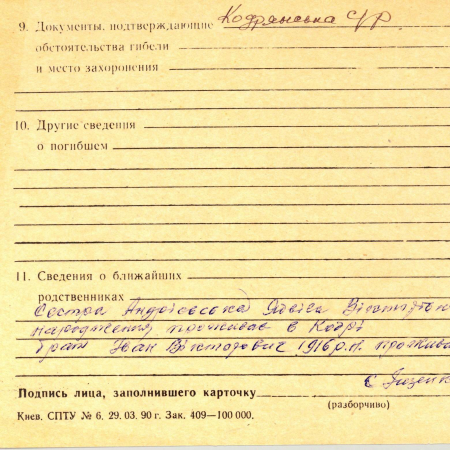 9. Документы, подтверждающие Кодрянська с/р.
обстоятельства гибели
и место захоронения
10. Другие сведения
о погибшем
11. Сведения о ближайших
родственниках
Сестра Андрієвська
народження проживає в Кодрі
Брат Іван Вікторович 1916 р.н.
Подпись лица, заполнившего карточку
(разборчиво)
Киев. СПТУ № 6. 29. 03. 90 г. Зак. 409—100 000.